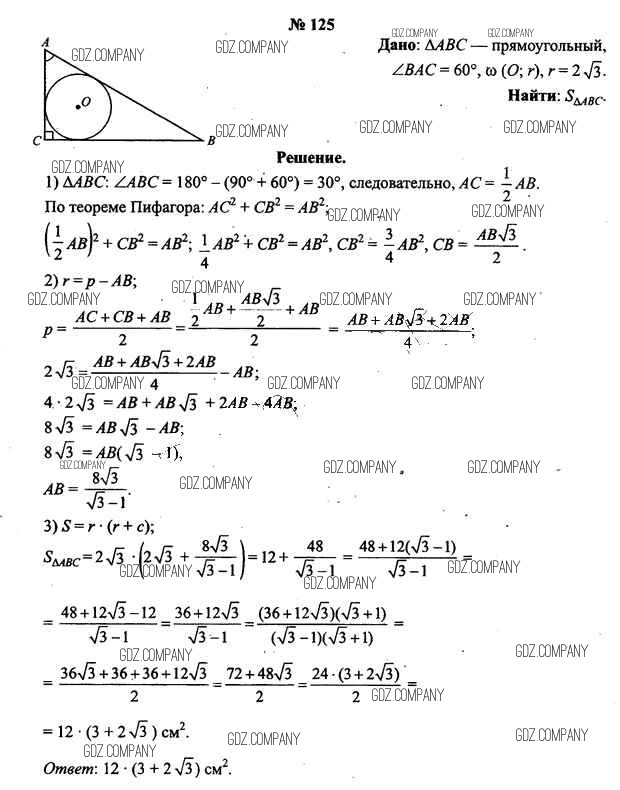 № 125
Дано: ΔABC — прямоугольный,
∠BAC = 60°, ω (O; r), r = 2√3.
Найти: S_ΔABC.
A
O
C
B
Решение.
1) ΔABC: ∠ABC = 180° – (90° + 60°) = 30°, следовательно, AC = 1/2 AB.
По теореме Пифагора: AC² + CB² = AB²;
(1/2 AB)² + CB² = AB²; 1/4 AB² + CB² = AB², CB² = 3/4 AB², CB = AB√3/2.
2) r = p – AB;
p = (AC + CB + AB)/2 = (1/2 AB + AB√3/2 + AB)/2 = (AB + AB√3 + 2AB)/4;
2√3 = (AB + AB√3 + 2AB)/4 – AB;
4 · 2√3 = AB + AB√3 + 2AB – 4AB;
8√3 = AB√3 – AB;
8√3 = AB(√3 – 1),
AB = 8√3/(√3 – 1).
3) S = r · (r + c);
S_ΔABC = 2√3 · (2√3 + 8√3/(√3 – 1)) = 12 + 48/(√3 – 1) = (48 + 12(√3 – 1))/(√3 – 1) =
= (48 + 12√3 – 12)/(√3 – 1) = (36 + 12√3)/(√3 – 1) = (36 + 12√3)(√3 + 1)/((√3 – 1)(√3 + 1)) =
= (36√3 + 36 + 36 + 12√3)/2 = (72 + 48√3)/2 = 24 · (3 + 2√3)/2 =
= 12 · (3 + 2√3) см².
Ответ: 12 · (3 + 2√3) см².
GDZ.COMPANY